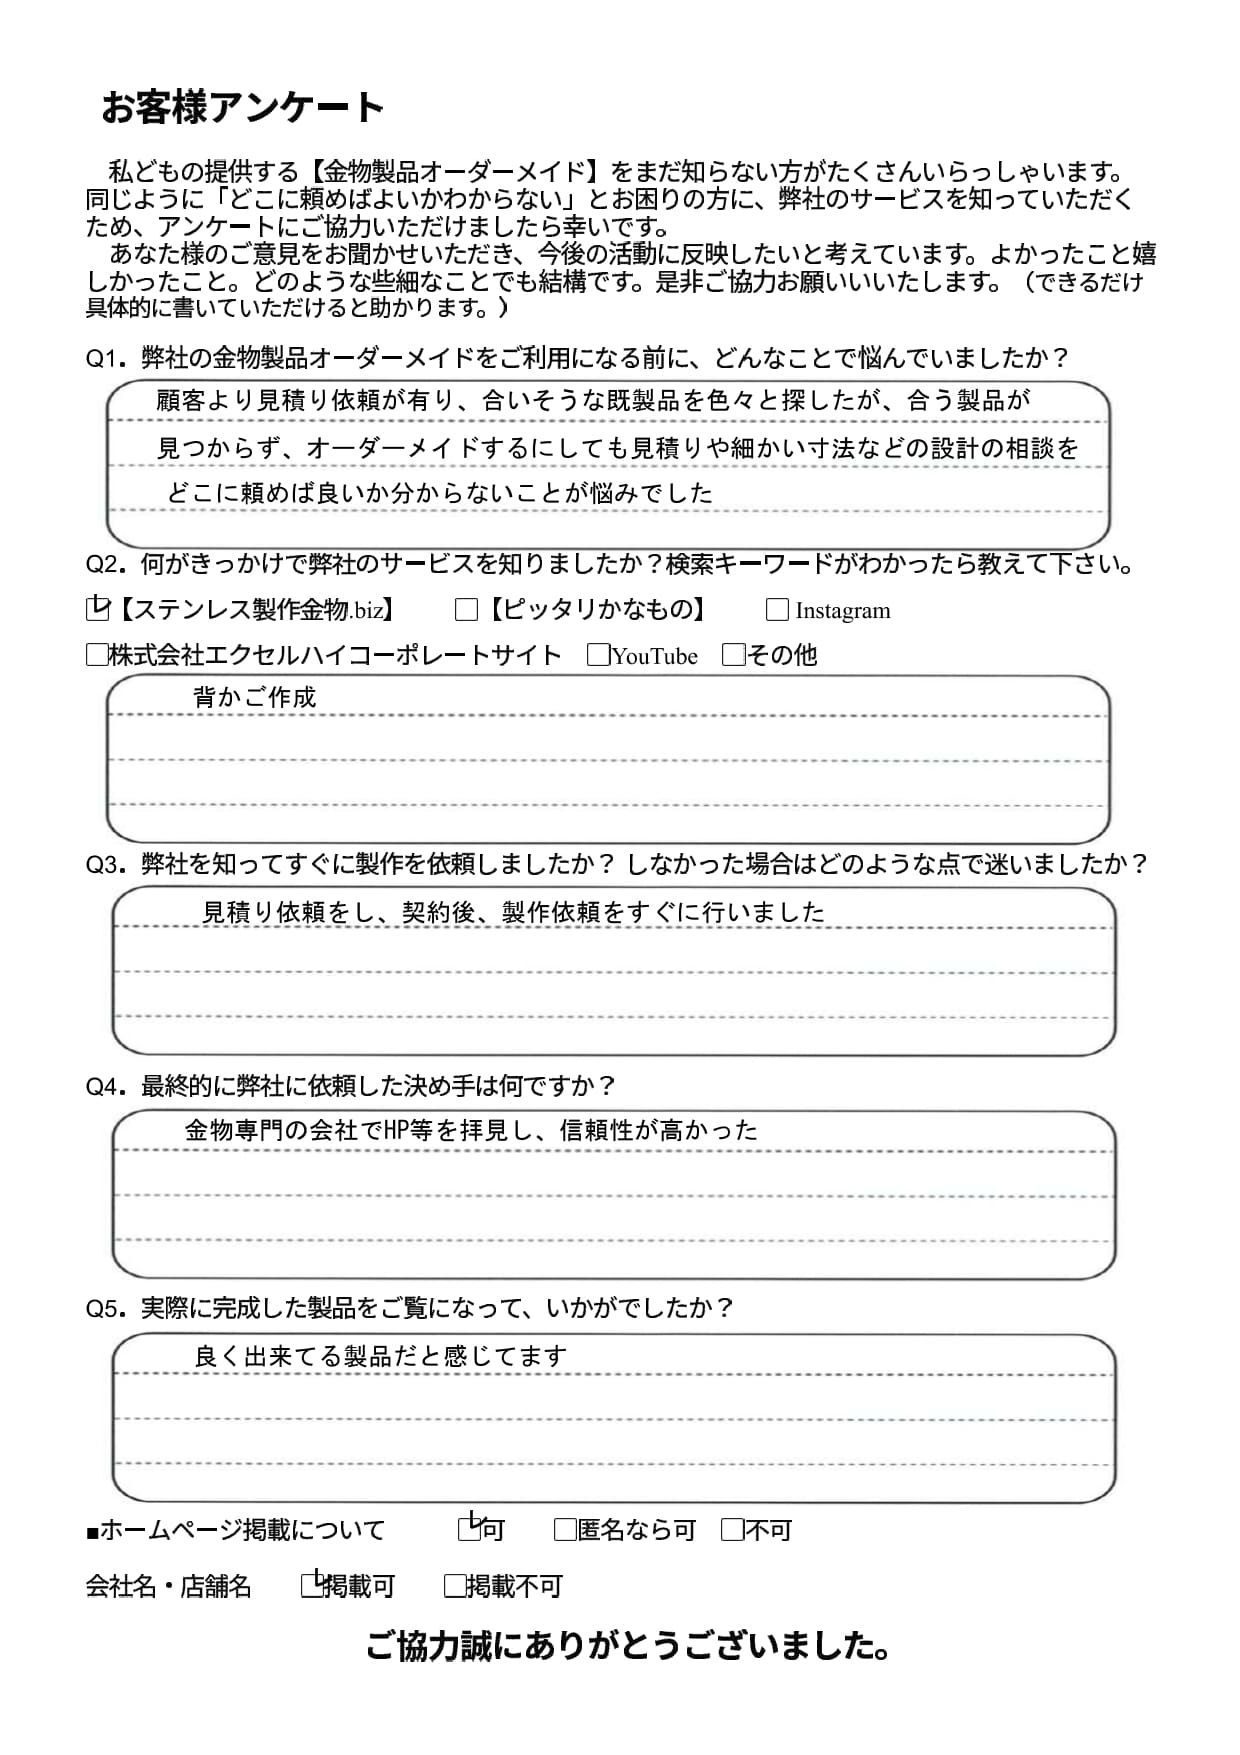 お客様アンケート
私どもの提供する【金物製品オーダーメイド】をまだ知らない方がたくさんいらっしゃいます。
同じように「どこに頼めばよいかわからない」とお困りの方に、弊社のサービスを知っていただく
ため、アンケートにご協力いただけましたら幸いです。
あなた様のご意見をお聞かせいただき、今後の活動に反映したいと考えています。よかったこと嬉
しかったこと。どのような些細なことでも結構です。是非ご協力お願いいいたします。（できるだけ
具体的に書いていただけると助かります。）
Q1．弊社の金物製品オーダーメイドをご利用になる前に、どんなことで悩んでいましたか？
顧客より見積り依頼が有り、合いそうな既製品を色々と探したが、合う製品が
見つからず、オーダーメイドするにしても見積りや細かい寸法などの設計の相談を
どこに頼めば良いか分からないことが悩みでした
Q2．何がきっかけで弊社のサービスを知りましたか？検索キーワードがわかったら教えて下さい。
☑【ステンレス製作金物.biz】 □【ピッタリかなもの】 □ Instagram
□株式会社エクセルハイコーポレートサイト □YouTube □その他
背かご作成
Q3．弊社を知ってすぐに製作を依頼しましたか？ しなかった場合はどのような点で迷いましたか？
見積り依頼をし、契約後、製作依頼をすぐに行いました
Q4．最終的に弊社に依頼した決め手は何ですか？
金物専門の会社でHP等を拝見し、信頼性が高かった
Q5．実際に完成した製品をご覧になって、いかがでしたか？
良く出来てる製品だと感じてます
■ホームページ掲載について ☑可 □匿名なら可 □不可
会社名・店舗名 ☑掲載可 □掲載不可
ご協力誠にありがとうございました。